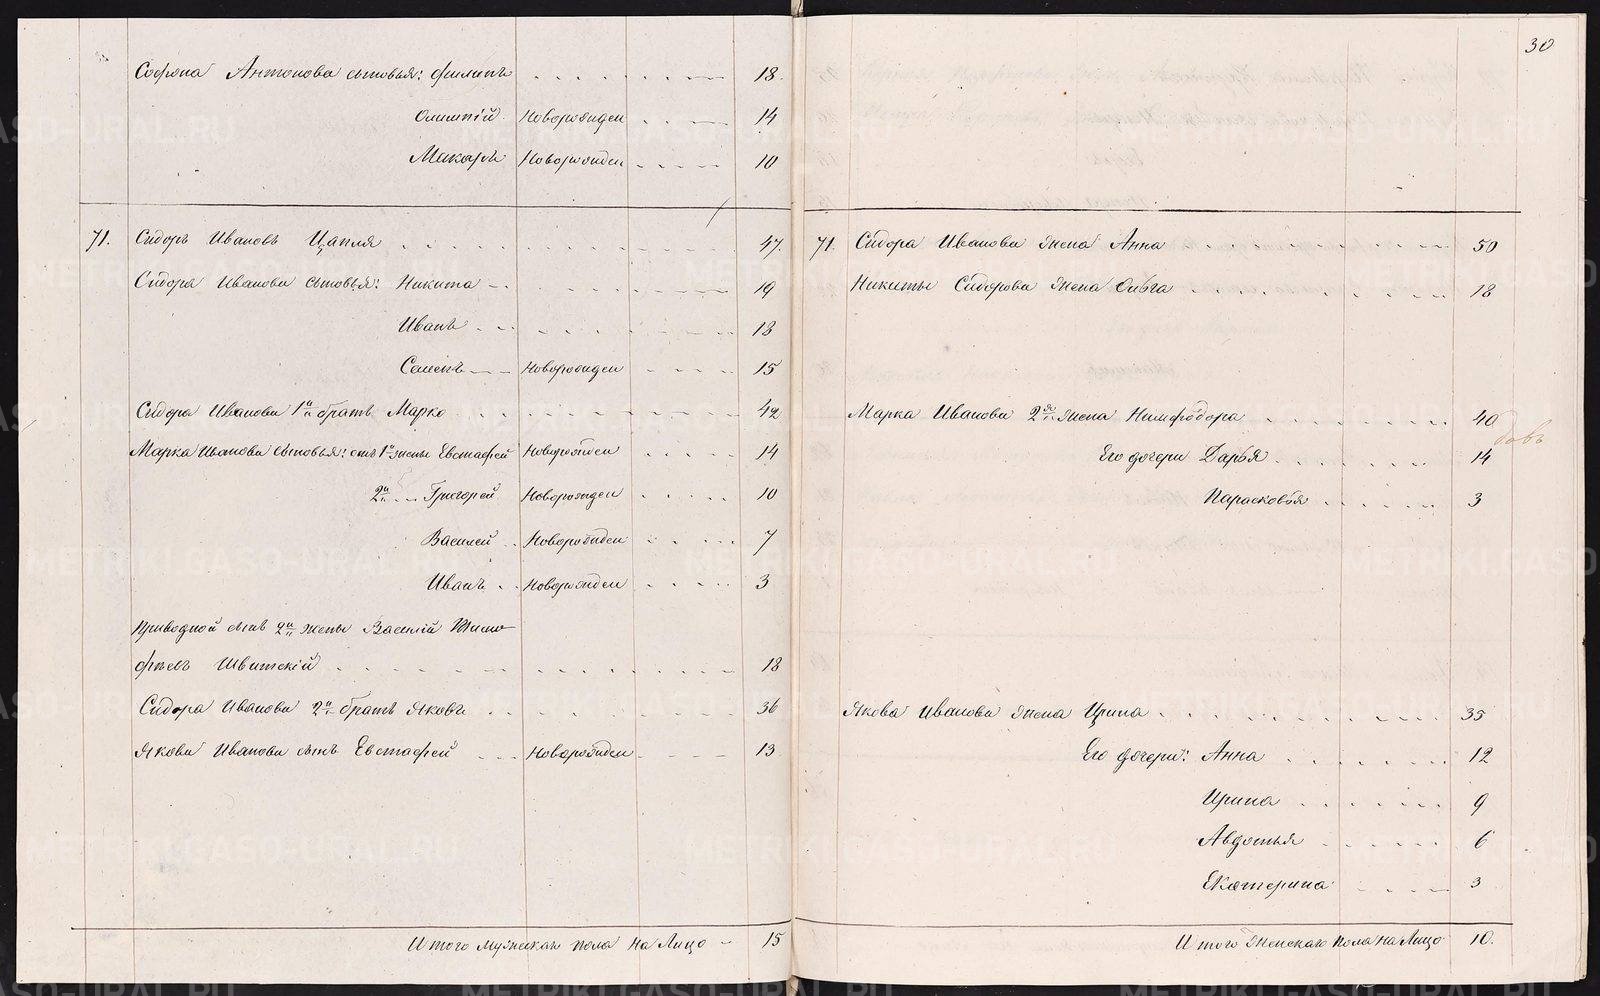 Софрона Антонова сыновья: Филипъ 18.
Олимпій Новорожден 14
Макаръ Новорожден 10
71. Сидоръ Ивановъ Цапля 47.
Сидора Иванова сыновья: Никита 19
Иванъ 13
Семенъ Новорожден 15
Сидора Иванова 1й братъ Марко 42
Марка Иванова сыновья: отъ 1й жены Евстафей Новорожден 14
2й Григорей Новорожден 10
Василей Новорожден 7
Иванъ Новорожден 3
Приводной сынъ 2й жены Василій Тимо
фѣевъ Швитскій 18
Сидора Иванова 2й братъ Яковъ 36
Якова Иванова сынъ Евстафей Новорожден 13
Итого мужескаго пола на Лицо 15
30
71. Сидора Иванова жена Анна 50
Никиты Сидорова жена Ольга 18
Марка Иванова 2я жена Нимфодора 40
Его дочери Дарья 14
Парасковья 3
Якова Иванова жена Ирина 35
Его дочери: Анна 12
Ирина 9
Авдотья 6
Екатерина 3
Итого женскаго пола на Лицо 10.
METRIKI.GASO-URAL.RU